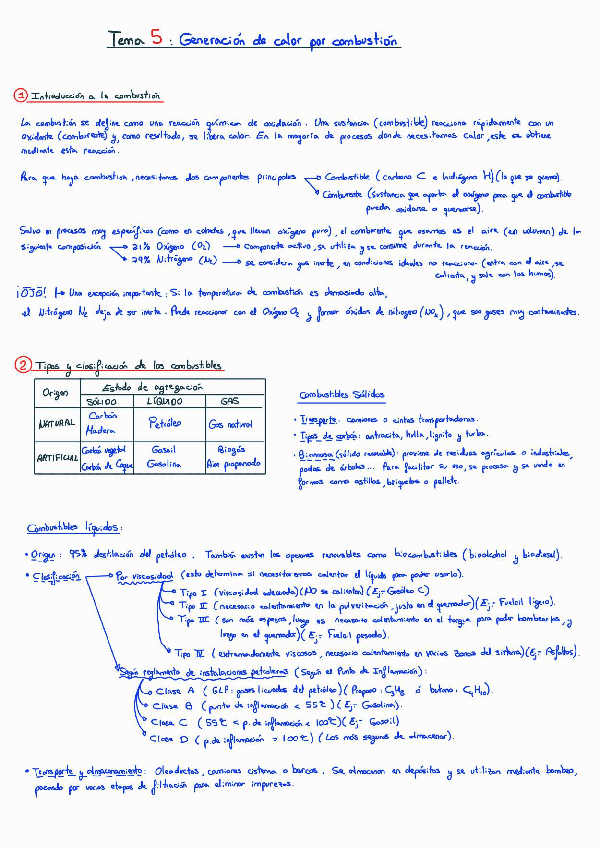 Tema 5 : Generación de calor por combustión
1 Introducción a la combustión
La combustión se define como una reacción química de oxidación. Una sustancia (combustible) reacciona rápidamente con un
oxidante (comburente) y, como resultado, se libera calor. En la mayoría de procesos donde necesitamos calor, este se obtiene
mediante esta reacción.
Para que haya combustión, necesitamos dos componentes principales → Combustible (carbono C e hidrógeno H) (lo que se quema).
→ Comburente (sustancia que aporta el oxígeno para que el combustible
pueda oxidarse o quemarse).
Salvo en procesos muy específicos (como en cohetes, que llevan oxígeno puro), el comburente que usamos es el aire (en volumen) de la
siguiente composición → 21% Oxígeno (O₂) → Componente activo, se utiliza y se consume durante la reacción.
→ 79% Nitrógeno (N₂) → se considera gas inerte, en condiciones ideales no reacciona (entra con el aire, se
calienta, y sale con los humos).
¡OJO! ↦ Una excepción importante: Si la temperatura de combustión es demasiado alta,
el Nitrógeno N₂ deja de ser inerte. Puede reaccionar con el Oxígeno O₂ y formar óxidos de nitrógeno (NOₓ), que son gases muy contaminantes.
2 Tipos y clasificación de los combustibles
Origen Estado de agregación
SÓLIDO LÍQUIDO GAS
NATURAL Carbón Madera Petróleo Gas natural
ARTIFICIAL Carbón vegetal Carbón de Coque Gasoil Gasolina Biogás Aire propanado
Combustibles Sólidos
• Transporte: camiones o cintas transportadoras.
• Tipos de carbón: antracita, hulla, lignito y turba.
• Biomasa (sólido renovable): proviene de residuos agrícolas o industriales,
podas de árboles... Para facilitar su uso, se procesa y se vende en
formas como astillas, briquetas o pellets.
Combustibles líquidos:
• Origen: 95% destilación del petróleo. También existen las opciones renovables como biocombustibles (bioalcohol y biodiesel).
• Clasificación → Por viscosidad (esto determina si necesitaremos calentar el líquido para poder usarlo).
→ Tipo I (viscosidad adecuada) (NO se calientan) (Ej- Gasóleo C)
→ Tipo II (necesario calentamiento en la pulverización, justo en el quemador) (Ej- Fueloil ligero).
→ Tipo III (son más espesos, luego es necesario calentamiento en el tanque para poder bombearlos, y
luego en el quemador) (Ej- Fueloil pesado).
→ Tipo IV (extremadamente viscosos, necesario calentamiento en varias zonas del sistema) (Ej- Asfaltos).
→ Según reglamento de instalaciones petroleras (Según el Punto de Inflamación):
→ Clase A (GLP: gases licuados del petróleo) (Propano: C₃H₈ ó butano: C₄H₁₀).
→ Clase B (punto de inflamación < 55℃) (Ej- Gasolina).
→ Clase C (55℃ < p. de inflamación < 100℃) (Ej- Gasoil)
→ Clase D (p. de inflamación > 100℃) (Los más seguros de almacenar).
• Transporte y almacenamiento: Oleoductos, camiones cisterna o barcos. Se almacenan en depósitos y se utilizan mediante bombeo,
pasando por varias etapas de filtración para eliminar impurezas.